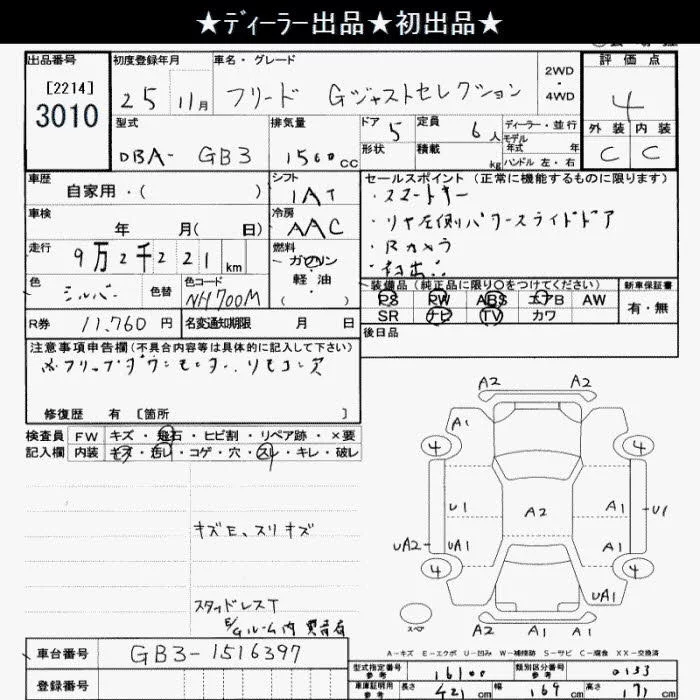 ★ディーラー出品★初出品★
出品番号 初度登録年月 車名・グレード 2WD・4WD 評価点
[2214]
3010 25 11月 フリード Gジャストセレクション 4
外装 内装
C C
型式 排気量 ドア 5 定員 6人 ディーラー・並行
モデル年式 年
DBA- GB3 1500cc 形状 積載 kg ハンドル 左・右
車歴 シフト セールスポイント(正常に機能するものに限ります)
自家用・( ) IAT ・スマートキー
車検 冷房 ・リヤ左側パワースライドドア
年 月( 日) AAC ・Rカメラ
走行 燃料 ・初出品
9万2千221km ガソリン・軽油
色 色替 色コード 装備品(純正品に限り○をつけてください) 新車保証書
シルバー NH700M PS PW ABS エアB AW 有・無
SR ナビ TV カワ
R券 11,760円 名変通知期限 月 日 後日品
注意事項申告欄(不具合内容等は具体的に記入して下さい)
※フリップダウンモニター,リモコン欠
修復歴 有 [箇所 ]
検査員 FW キズ・飛石・ヒビ割・リペア跡・×要
記入欄 内装 キズ・汚レ・コゲ・穴・スレ・キレ・破レ
キズE、スリキズ
スタッドレスT
E/Gルーム内 異音有
A2 A2
A1 A1
4 4
U1 A2 A1 U1
UA2 UA1 A1
4 4
UA1
スペア
A2 A1 A1
A-キズ E-エクボ U-凹み W-補修跡 S-サビ C-腐食 XX-交換済
車台番号 GB3-1516397
型式指定番号 参考 16100 類別区分番号 参考 0133
登録番号
車庫証明用 参考 長さ 421cm 幅 169cm 高さ 171cm